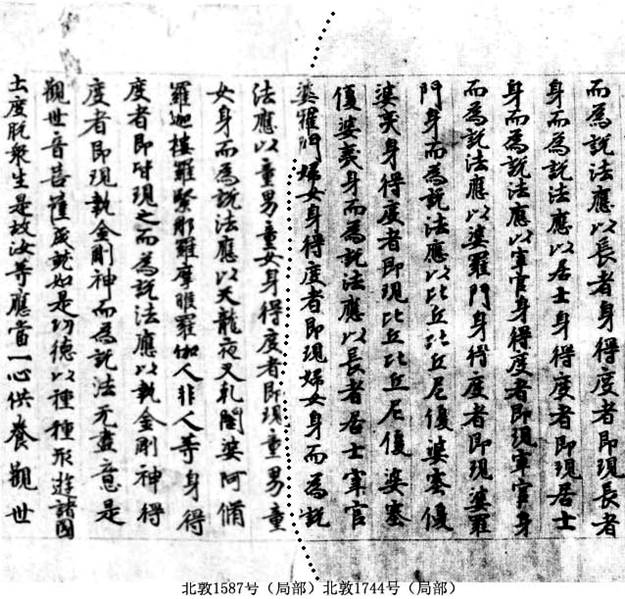 而為說法應以長者身得度者即現長者
身而為說法應以居士身得度者即現居士
身而為說法應以宰官身得度者即現宰官身
而為說法應以婆羅門身得度者即現婆羅
門身而為說法應以比丘比丘尼優婆塞優
婆夷身得度者即現比丘比丘尼優婆塞
優婆夷身而為說法應以長者居士宰官
婆羅門婦女身得度者即現婦女身而為說
法應以童男童女身得度者即現童男童
女身而為說法應以天龍夜叉乹闥婆阿脩
羅迦樓羅緊那羅摩睺羅伽人非人等身得
度者即皆現之而為說法應以執金剛神得
度者即現執金剛神而為說法无盡意是
觀世音菩薩成就如是功德以種種形遊諸國
土度脫衆生是故汝等應當一心供養觀世
北敦1587号（局部）北敦1744号（局部）